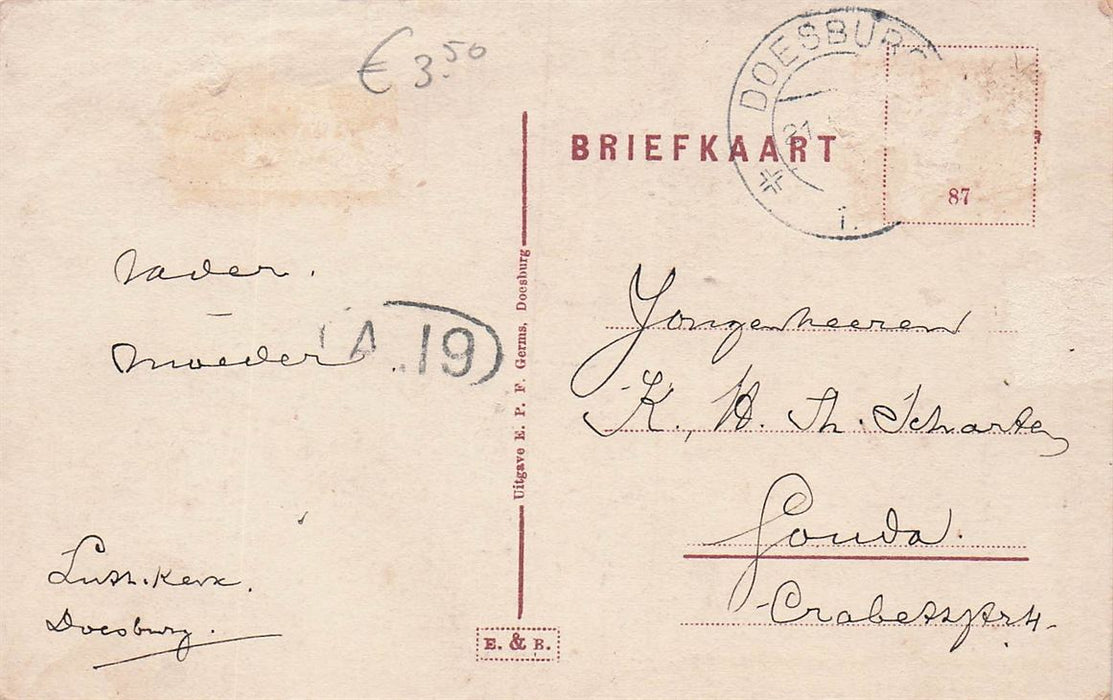 € 3.50
DOESBURG
21
1.
BRIEFKAART
87
Vader.
–
Moeder.
A.19
Uitgave E. P. F. Germs, Doesburg
Jongenheeren
K., H. Th. Scharten
Gouda.
Luth. Kerk.
Doesburg.
E. & B.